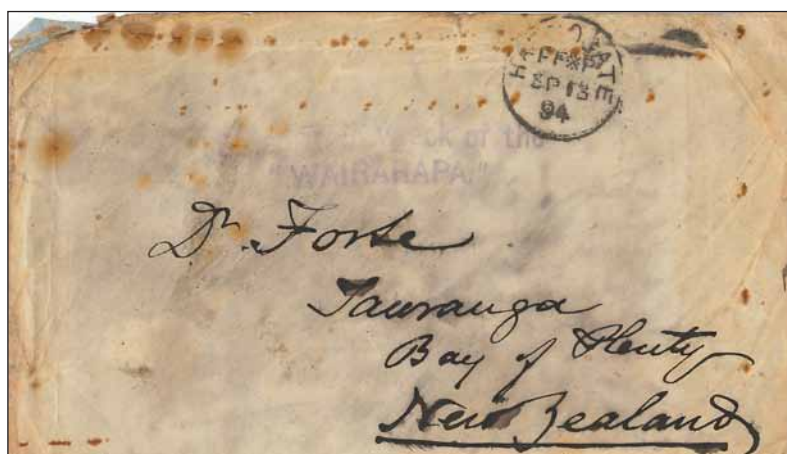 SP 13
94
ck of the
"WAIRARAPA."
Dr. Forte
Tauranga
Bay of Plenty
New Zealand